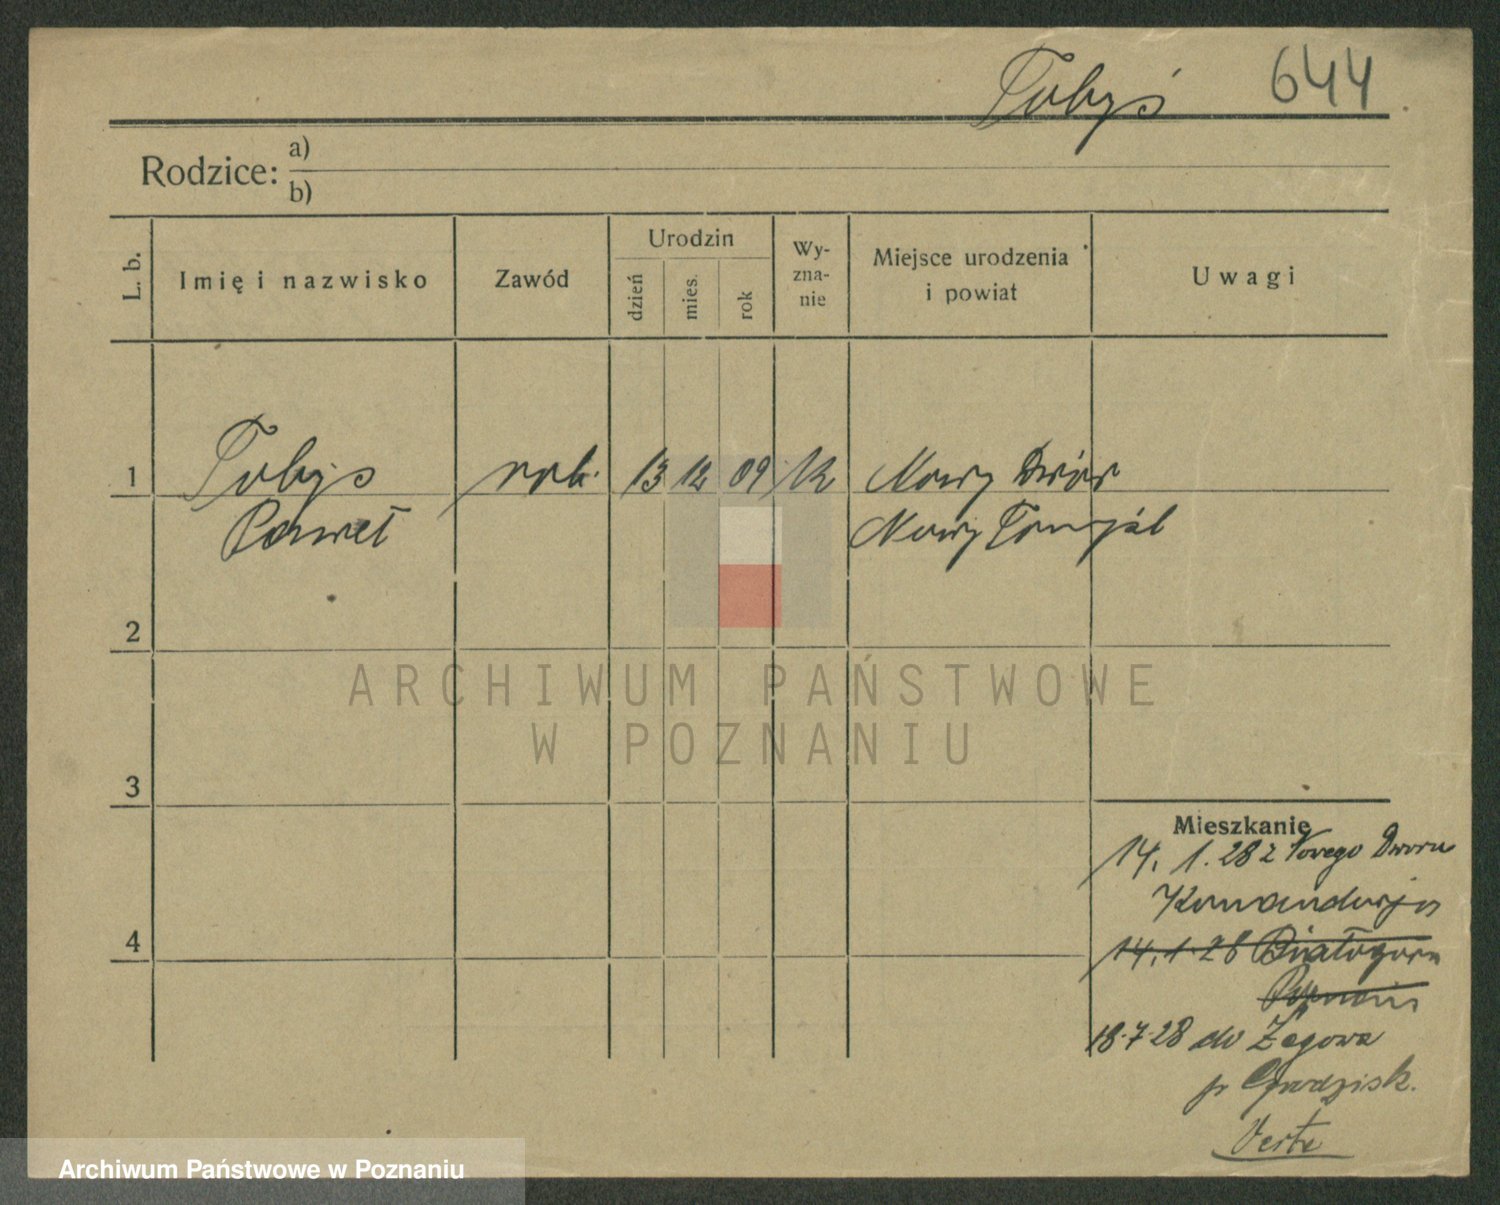 Tobyś 644
Rodzice: a)
b)
L. b. Imię i nazwisko Zawód Urodzin dzień mies. rok Wy-zna-nie Miejsce urodzenia i powiat Uwagi
1 Tobys rob. 13 12 09 k Nowy Dwór
Paweł Nowy Tomyśl
2
3
4
Mieszkanie
14. 1. 28 z Nowego Dworu
Komandorja
14. 1. 28
Poznań
18.7.28 do
p Grodzisk.
Verte
ARCHIWUM PAŃSTWOWE
W POZNANIU
Archiwum Państwowe w Poznaniu